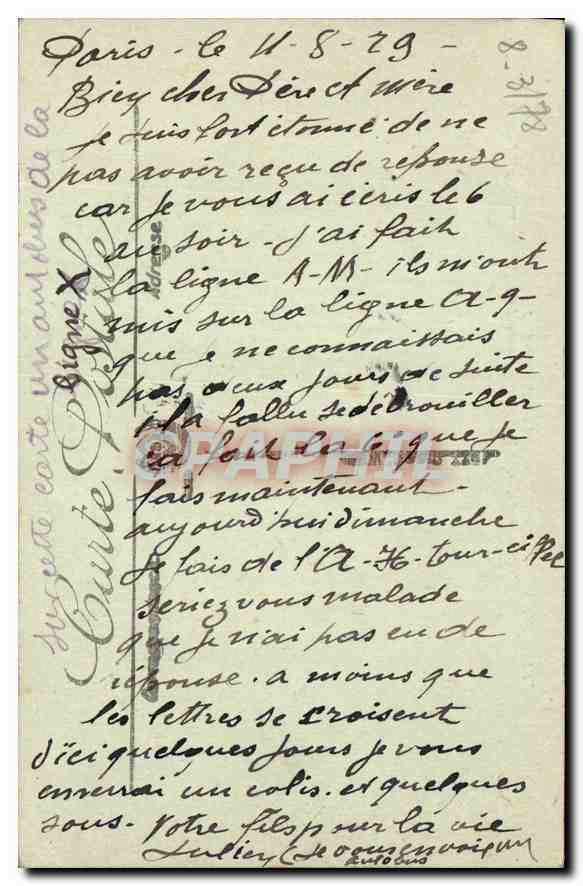 Paris - le 11-8-29 -
Bien cher Père et mère
je suis fort étonné de ne
pas avoir reçu de reponse
car je vous ai écris le 6
au soir - j'ai fait
la ligne A-M- ils m'ont
mis sur la ligne A-9-
que je ne connaissais
pas deux jours de suite
il a fallu se debrouiller
fais maintenant -
aujourd'hui dimanche
je fais de l'A-H-tour-eiffel
seriez vous malade
que je n'ai pas eu de
réponse. a moins que
les lettres se croisent
d'ici quelques jours je vous
enverrai un colis. et quelques
sous. Votre fils pour la vie
Julien (je vous envoie un
autobus
sur cette carte un autobus de la
ligne X
8-3/78
Carte Postale
Adresse
PAPHIL